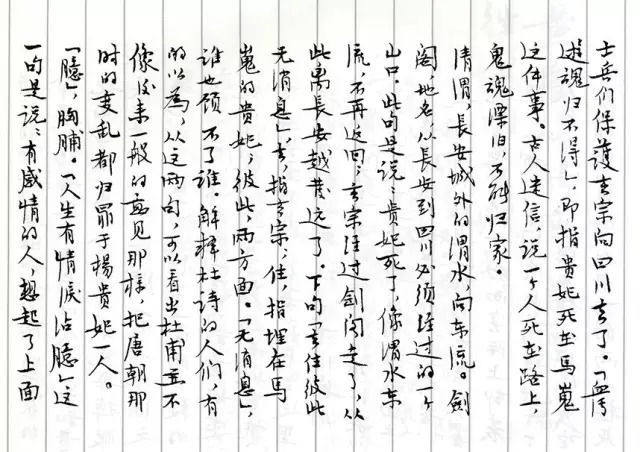 士兵们保护玄宗向四川去了。「血污
遊魂归不得」，即指贵妃死在马嵬
这件事。古人迷信，说一个人死在路上，
鬼魂漂泊，不能归家。
清渭，長安城外的渭水，向东流。劍
阁，地名，从長安到四川必须经过的一个
山口。此句是说：贵妃死了，像渭水东
流，不再返回；玄宗经过剑阁走了，从
此离長安越发远了。下句「去住彼此
无消息」，去，指玄宗，住，指埋在马
嵬的贵妃，彼此，两方面。「无消息」，
谁也顾不了谁。解释杜诗的人们，有
的以為，从这两句，可以看出杜甫並不
像後来一般的意见那样，把唐朝那
时的变乱都归罪于楊贵妃一人。
「臆」，胸脯。「人生有情淚沾臆」这
一句是说：有感情的人，想起了上面